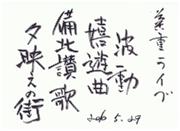 葉重ライブ
波動
嬉遊曲
備北讃歌
夕映えの街
2005.5.29